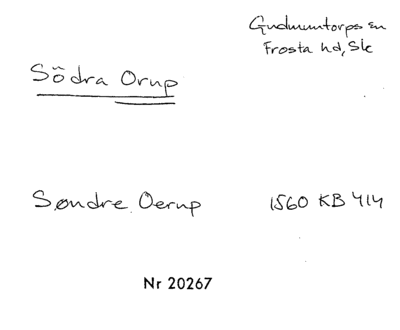 Gudmuntorps sn
Frosta hd, Sk
Södra Orup
Søndre Oerup 1560 KB 414
Nr 20267